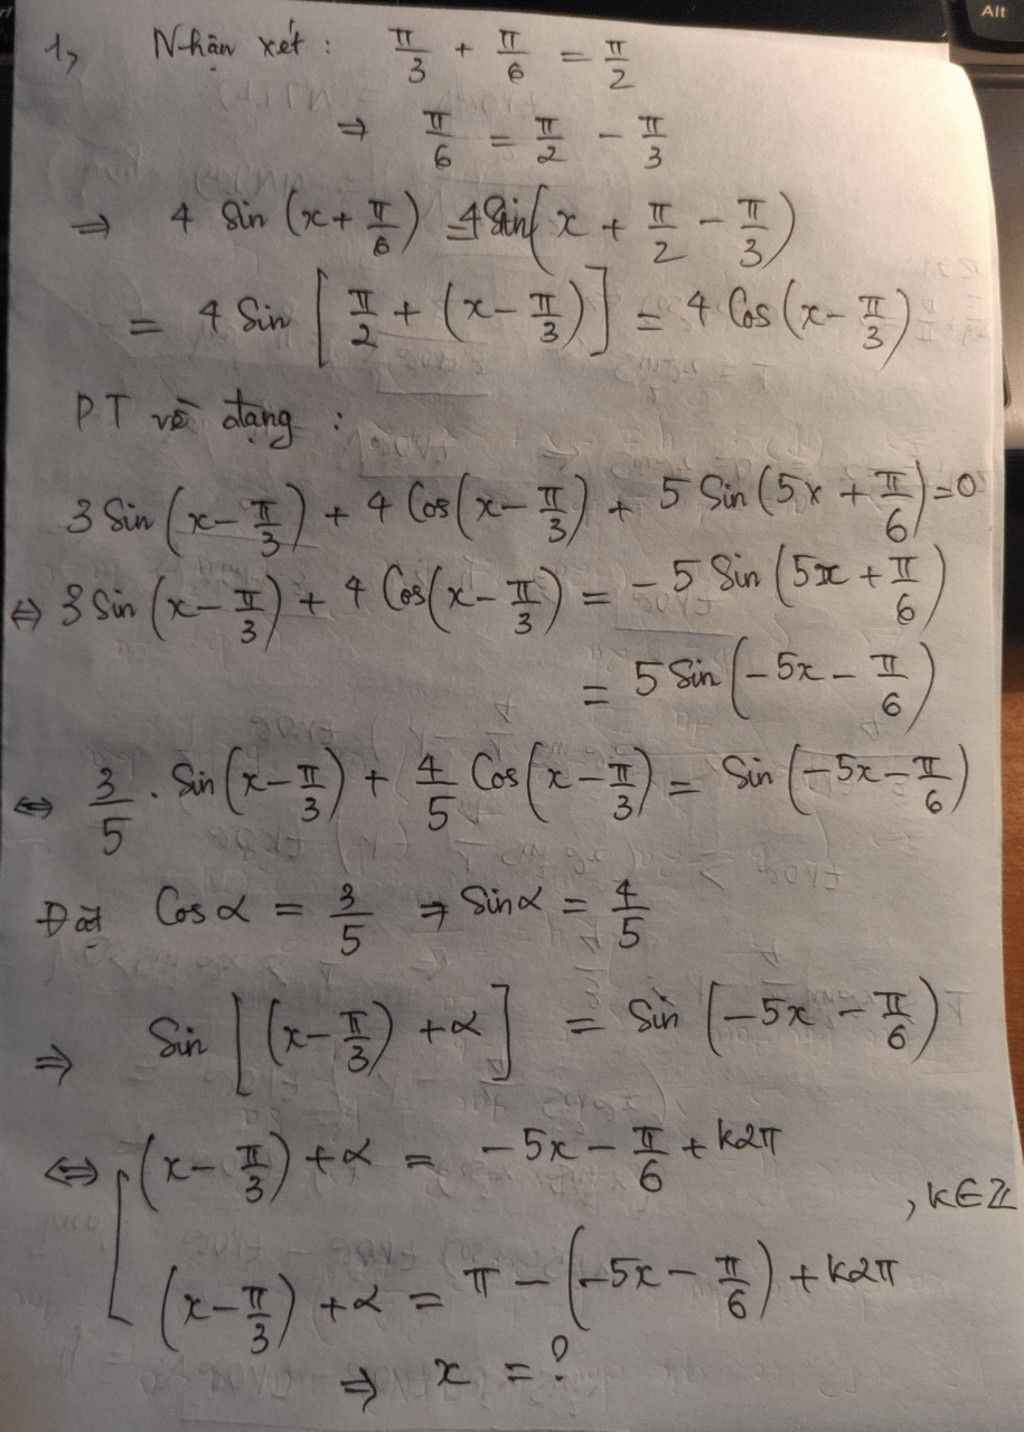 1, Nhận xét : π/3 + π/6 = π/2
⇒ π/6 = π/2 − π/3
⇒ 4 Sin (x + π/6) = 4 Sin (x + π/2 − π/3)
= 4 Sin [π/2 + (x − π/3)] = 4 Cos (x − π/3)
PT về dạng :
3 Sin (x − π/3) + 4 Cos (x − π/3) + 5 Sin (5x + π/6) = 0
⇔ 3 Sin (x − π/3) + 4 Cos (x − π/3) = − 5 Sin (5x + π/6)
= 5 Sin (−5x − π/6)
⇔ 3/5 . Sin (x − π/3) + 4/5 Cos (x − π/3) = Sin (−5x − π/6)
Đặt Cos α = 3/5 ⇒ Sin α = 4/5
⇒ Sin [(x − π/3) + α] = Sin (−5x − π/6)
⇔ [ (x − π/3) + α = −5x − π/6 + k2π
, k ∈ ℤ
(x − π/3) + α = π − (−5x − π/6) + k2π
⇒ x = ?
Alt